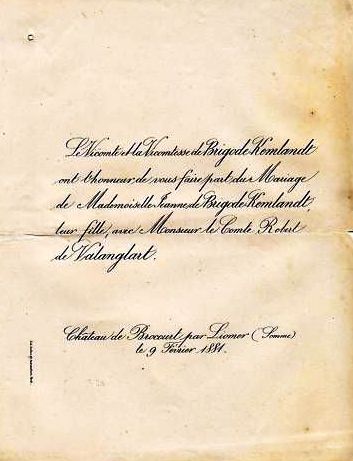 Le Vicomte et la Vicomtesse de Brigode Kemlandt
ont l'honneur de vous faire part du Mariage
de Mademoiselle Jeanne de Brigode Kemlandt,
leur fille, avec Monsieur le Comte Robert
de Valanglart.
Château de Brocourt par Liomer (Somme)
le 9 Février 1881.